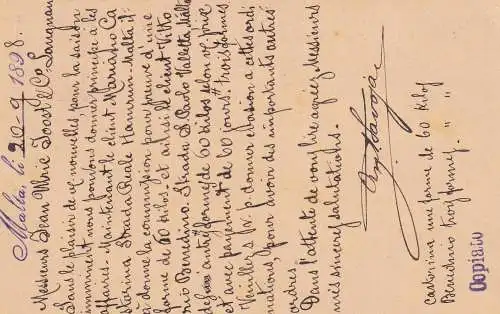 Malta, li 20-9-1898.
Messieurs Jean Marie Joost & Co. Longnau
Sans le plaisir de vos nouvelles pour la saison
imminent nous pouvons donner principe à les
affaires. Maintenant le client Mariano Ca
storina Strada Reale Hamrun. Malta d:
a donné la commission pour preuve d'une
forme de 60 kilos. et ainsi le client Vitto
rio Benedinio. Strada S. Paolo Valletta. Malta
de autre formes de 60 kilos selon vos prix
et avec payement de 60 jours". trois formes.
Veuillez s. v. p. donner evasion a cettes ordi
nations, pour avoir des importants autres
ordres
Dans l'attente de vous lire agréez Messieurs
mes sinceres salutations.
Castorina une forme de 60 kilos
Benedinio trois formes. " " "
Copiato